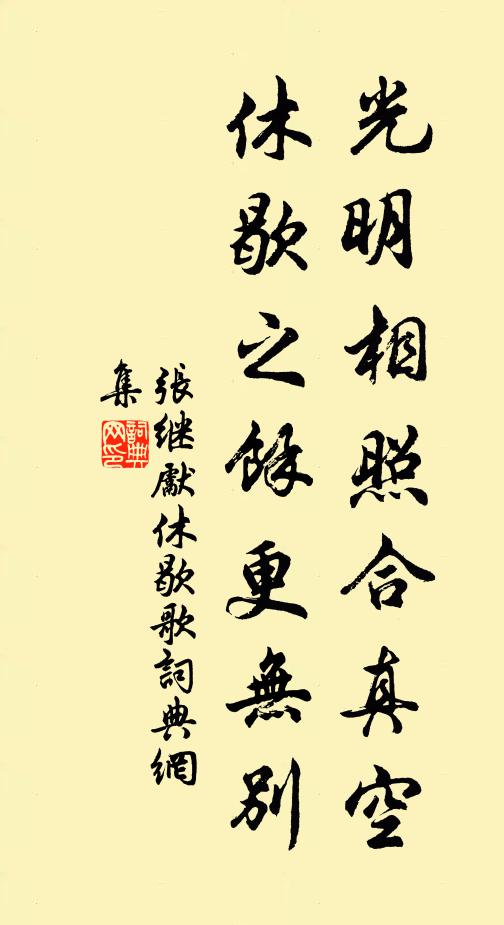 光明相照合真空
休歇之餘更無別
張继獻休歇歌詞典網
集
詞典
网印